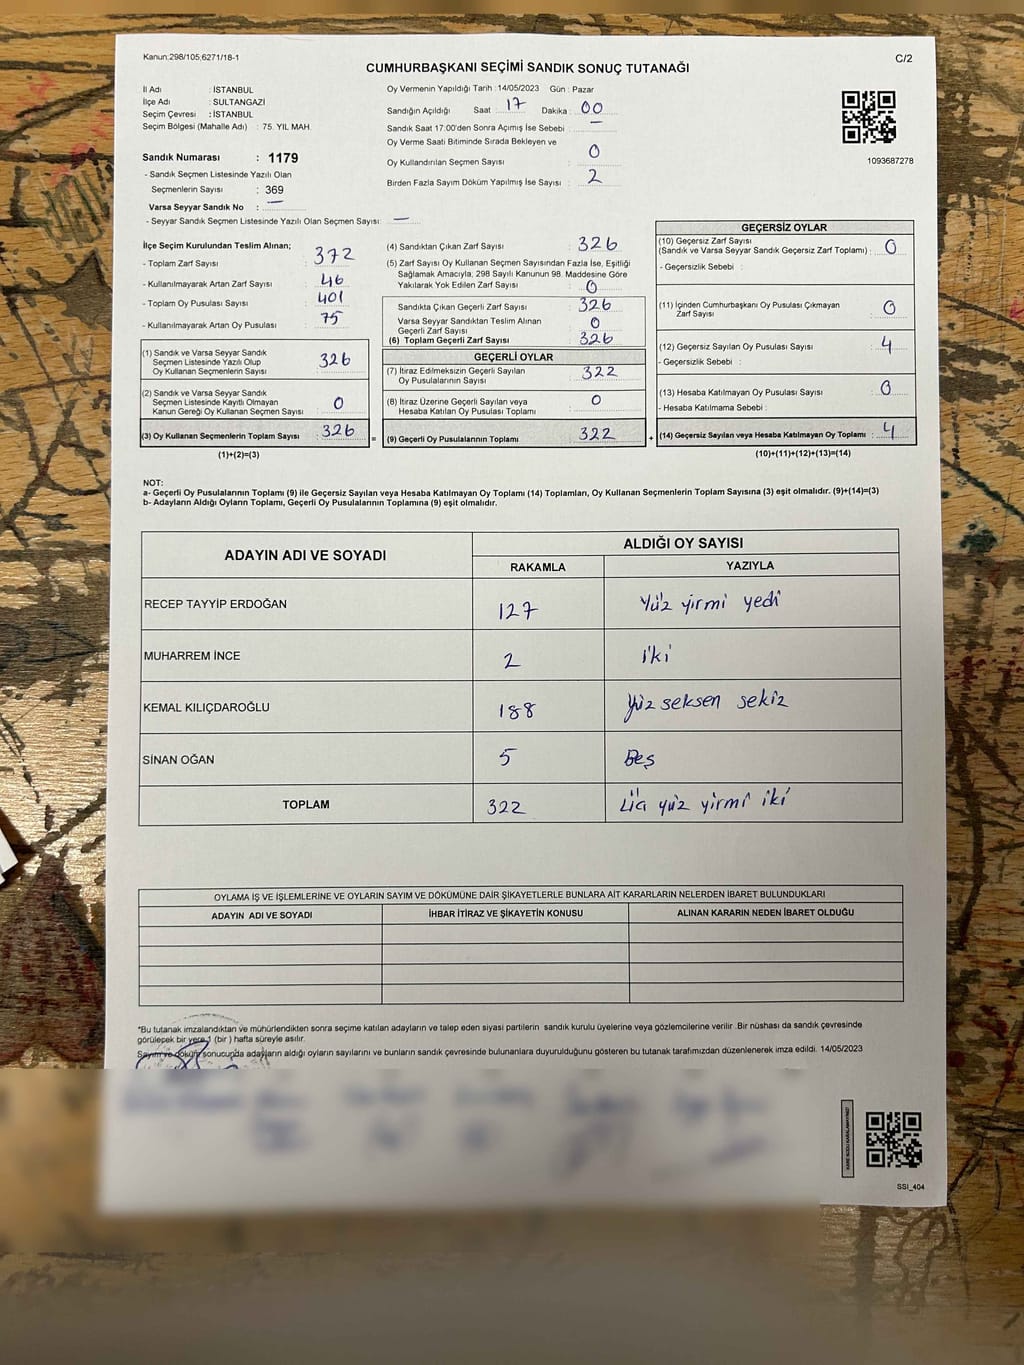 Kanun:298/105;6271/18-1
C/2
CUMHURBAŞKANI SEÇİMİ SANDIK SONUÇ TUTANAĞI
İl Adı : İSTANBUL
İlçe Adı : SULTANGAZİ
Seçim Çevresi : İSTANBUL
Seçim Bölgesi (Mahalle Adı) : 75. YIL MAH.
Sandık Numarası : 1179
- Sandık Seçmen Listesinde Yazılı Olan
Seçmenlerin Sayısı : 369
Varsa Seyyar Sandık No : —
- Seyyar Sandık Seçmen Listesinde Yazılı Olan Seçmen Sayısı: —
Oy Vermenin Yapıldığı Tarih :14/05/2023 Gün : Pazar
Sandığın Açıldığı Saat : 17 Dakika : 00
Sandık Saat 17:00'den Sonra Açımış İse Sebebi : —
Oy Verme Saati Bitiminde Sırada Bekleyen ve
Oy Kullandırılan Seçmen Sayısı : 0
Birden Fazla Sayım Döküm Yapılmış İse Sayısı : 2
1093687278
İlçe Seçim Kurulundan Teslim Alınan;
- Toplam Zarf Sayısı : 372
- Kullanılmayarak Artan Zarf Sayısı : 46
- Toplam Oy Pusulası Sayısı : 401
- Kullanılmayarak Artan Oy Pusulası : 75
(1) Sandık ve Varsa Seyyar Sandık
Seçmen Listesinde Yazılı Olup
Oy Kullanan Seçmenlerin Sayısı : 326
(2) Sandık ve Varsa Seyyar Sandık
Seçmen Listesinde Kayıtlı Olmayan
Kanun Gereği Oy Kullanan Seçmen Sayısı : 0
(3) Oy Kullanan Seçmenlerin Toplam Sayısı : 326
(1)+(2)=(3)
(4) Sandıktan Çıkan Zarf Sayısı : 326
(5) Zarf Sayısı Oy Kullanan Seçmen Sayısından Fazla İse, Eşitliği
Sağlamak Amacıyla, 298 Sayılı Kanunun 98. Maddesine Göre
Yakılarak Yok Edilen Zarf Sayısı : 0
Sandıkta Çıkan Geçerli Zarf Sayısı : 326
Varsa Seyyar Sandıktan Teslim Alınan
Geçerli Zarf Sayısı : 0
(6) Toplam Geçerli Zarf Sayısı : 326
GEÇERLİ OYLAR
(7) İtiraz Edilmeksizin Geçerli Sayılan
Oy Pusulalarının Sayısı : 322
(8) İtiraz Üzerine Geçerli Sayılan veya
Hesaba Katılan Oy Pusulası Toplamı : 0
= (9) Geçerli Oy Pusulalarının Toplamı : 322
GEÇERSİZ OYLAR
(10) Geçersiz Zarf Sayısı
(Sandık ve Varsa Seyyar Sandık Geçersiz Zarf Toplamı) : 0
- Geçersizlik Sebebi :
(11) İçinden Cumhurbaşkanı Oy Pusulası Çıkmayan
Zarf Sayısı : 0
(12) Geçersiz Sayılan Oy Pusulası Sayısı : 4
- Geçersizlik Sebebi :
(13) Hesaba Katılmayan Oy Pusulası Sayısı : 0
- Hesaba Katılmama Sebebi :
+ (14) Geçersiz Sayılan veya Hesaba Katılmayan Oy Toplamı : 4
(10)+(11)+(12)+(13)=(14)
NOT:
a- Geçerli Oy Pusulalarının Toplamı (9) ile Geçersiz Sayılan veya Hesaba Katılmayan Oy Toplamı (14) Toplamları, Oy Kullanan Seçmenlerin Toplam Sayısına (3) eşit olmalıdır. (9)+(14)=(3)
b- Adayların Aldığı Oyların Toplamı, Geçerli Oy Pusulalarının Toplamına (9) eşit olmalıdır.
ADAYIN ADI VE SOYADI
ALDIĞI OY SAYISI
RAKAMLA YAZIYLA
RECEP TAYYİP ERDOĞAN 127 Yüz yirmi yedi
MUHARREM İNCE 2 iki
KEMAL KILIÇDAROĞLU 188 Yüz seksen sekiz
SİNAN OĞAN 5 Beş
TOPLAM 322 Üç yüz yirmi iki
OYLAMA İŞ VE İŞLEMLERİNE VE OYLARIN SAYIM VE DÖKÜMÜNE DAİR ŞİKAYETLERLE BUNLARA AİT KARARLARIN NELERDEN İBARET BULUNDUKLARI
ADAYIN ADI VE SOYADI İHBAR İTİRAZ VE ŞİKAYETİN KONUSU ALINAN KARARIN NEDEN İBARET OLDUĞU
*Bu tutanak imzalandıktan ve mühürlendikten sonra seçime katılan adayların ve talep eden siyasi partilerin sandık kurulu üyelerine veya gözlemcilerine verilir .Bir nüshası da sandık çevresinde
görülecek bir yere 1 (bir ) hafta süreyle asılır.
Sayım ve döküm sonucunda adayların aldığı oyların sayılarını ve bunların sandık çevresinde bulunanlara duyurulduğunu gösteren bu tutanak tarafımızdan düzenlenerek imza edildi. 14/05/2023
SSI_404